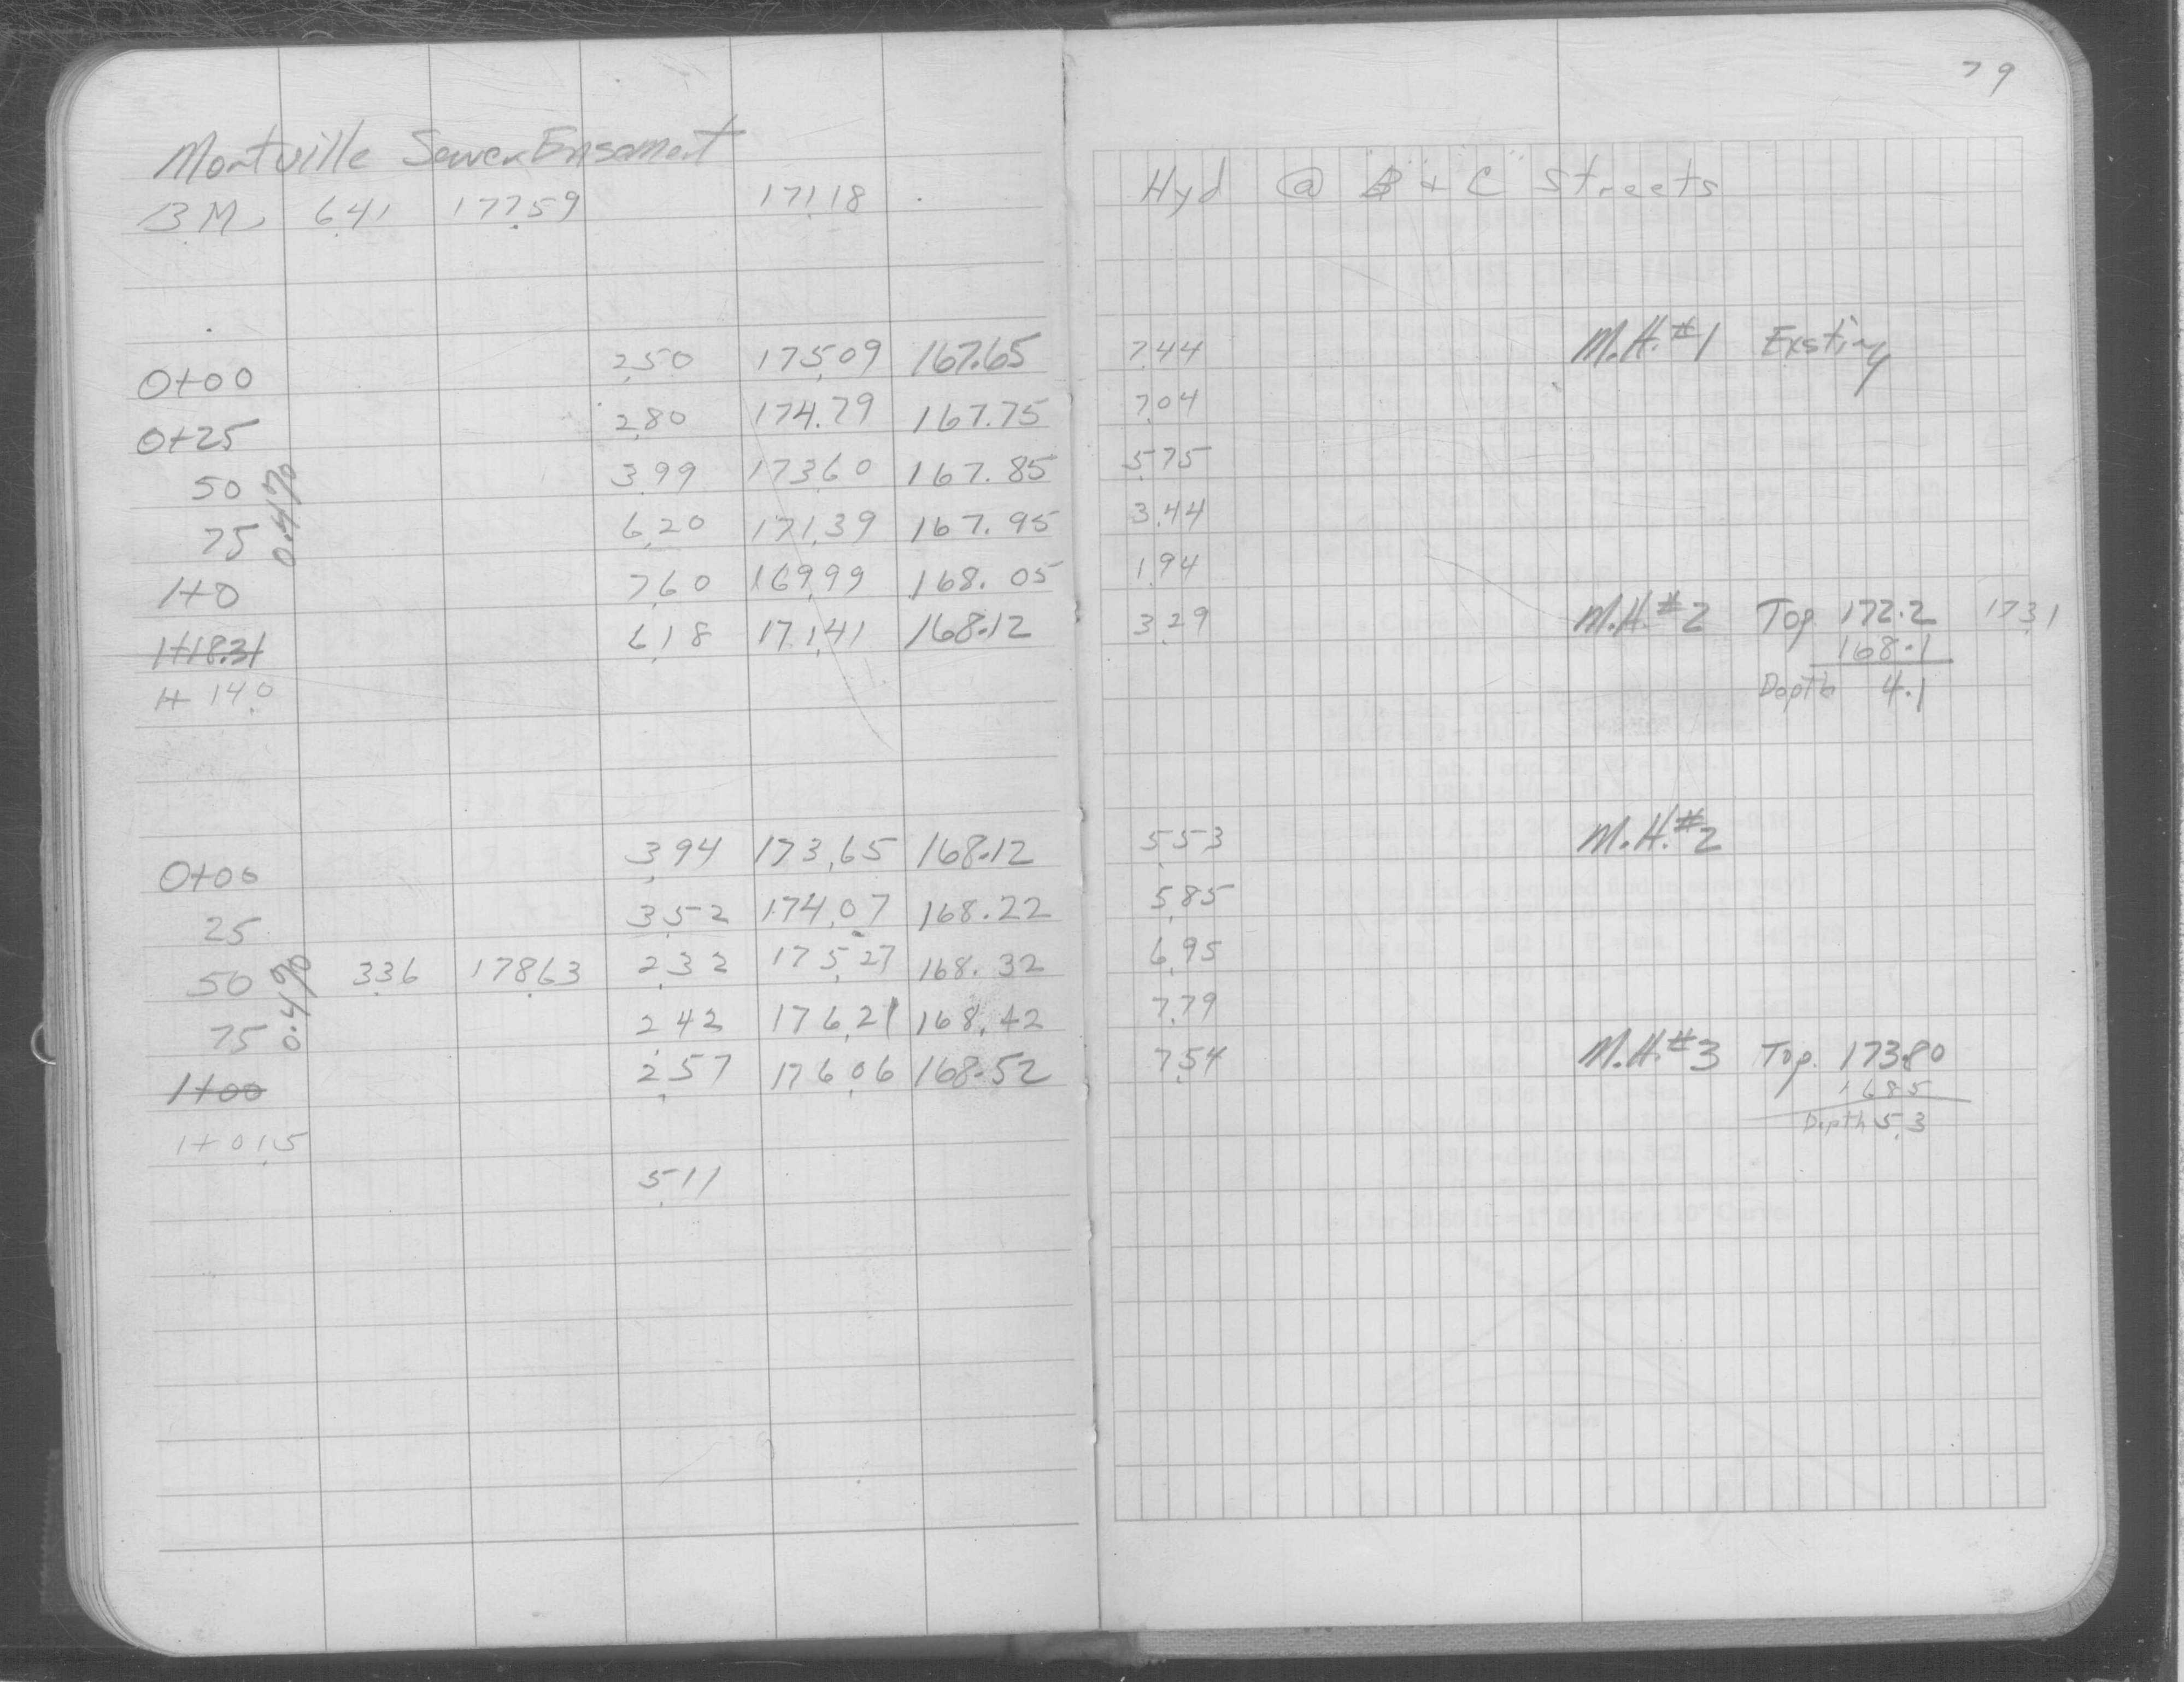 79
Montville Sewer Ensament
B.M. 6.41 177.59 171.18 Hyd @ "B" + "C" Streets
0+00 2.50 175.09 167.65 7.44 M.H.#1 Exsting
0+25 2.80 174.79 167.75 7.04
50 3.99 173.60 167.85 5.75
75 6.20 171.39 167.95 3.44
0.4%
1+0 7.60 169.99 168.05 1.94
1+18.31 6.18 171.41 168.12 3.29 M.H.#2 Top 172.2 173.1
168.1
1+14.0 Depth 4.1
0+00 3.94 173.65 168.12 5.53 M.H.#2
25 3.52 174.07 168.22 5.85
50 3.36 178.63 2.32 175.27 168.32 6.95
75 2.42 176.21 168.42 7.79
0.4%
1+00 2.57 176.06 168.52 7.54 M.H.#3 Top. 173.80
168.5
1+01.5 Depth 5.3
5.11